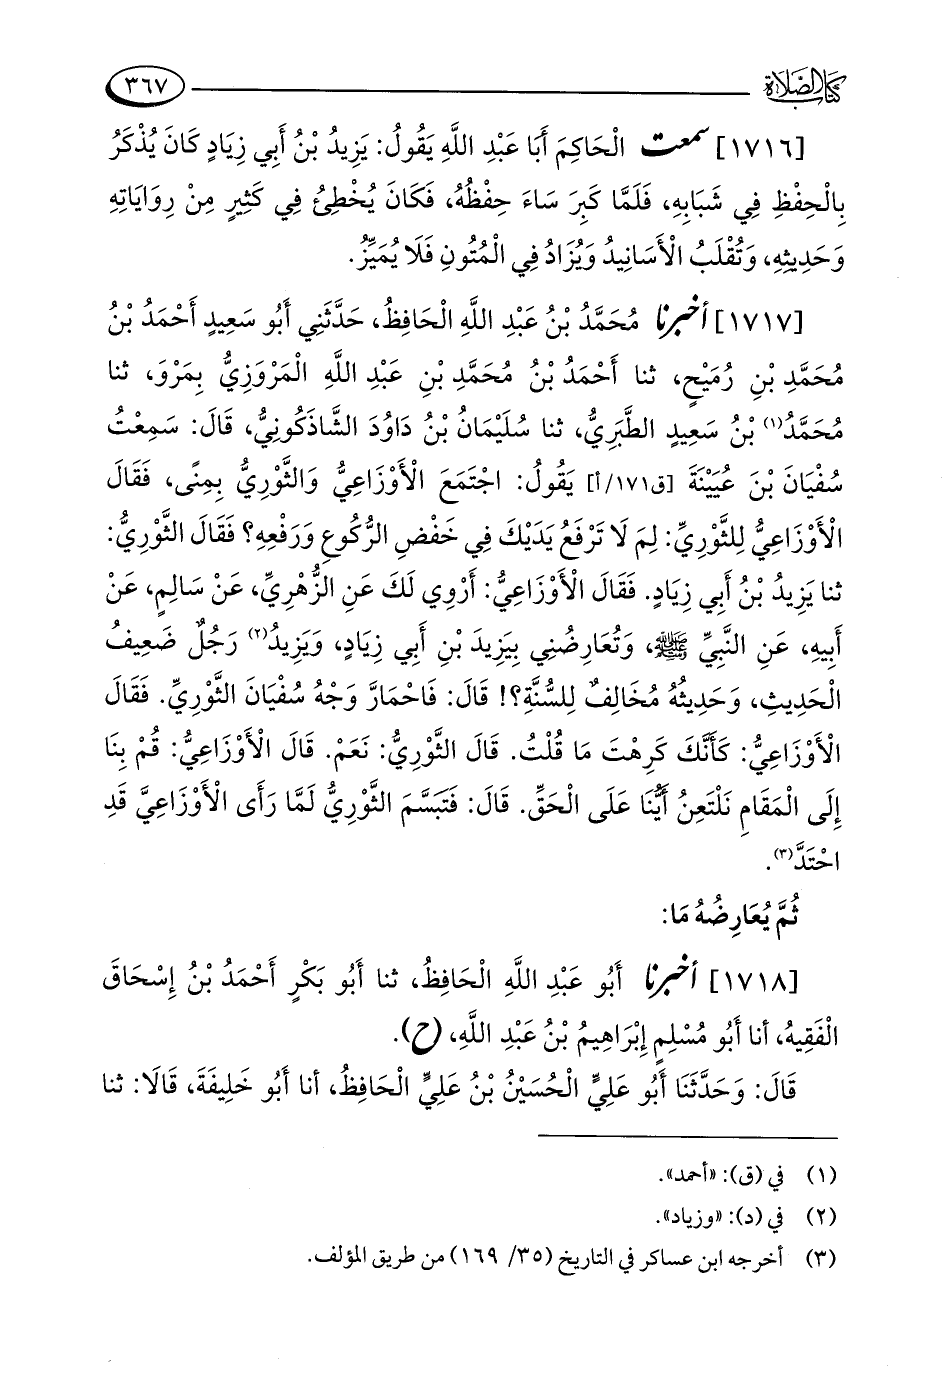 كتاب الصلاة ٣٦٧
[١٧١٦] سمعت الْحَاكِمَ أَبَا عَبْدِ اللَّهِ يَقُولُ: يَزِيدُ بْنُ أَبِي زِيَادٍ كَانَ يُذْكَرُ
بِالْحِفْظِ فِي شَبَابِهِ، فَلَمَّا كَبِرَ سَاءَ حِفْظُهُ، فَكَانَ يُخْطِئُ فِي كَثِيرٍ مِنْ رِوَايَاتِهِ
وَحَدِيثِهِ، وَتُقْلَبُ الْأَسَانِيدُ وَيُزَادُ فِي الْمُتُونِ فَلَا يُمَيِّزُ.
[١٧١٧] أخبرنا مُحَمَّدُ بْنُ عَبْدِ اللَّهِ الْحَافِظُ، حَدَّثَنِي أَبُو سَعِيدٍ أَحْمَدُ بْنُ
مُحَمَّدِ بْنِ رُمَيْحٍ، ثنا أَحْمَدُ بْنُ مُحَمَّدِ بْنِ عَبْدِ اللَّهِ الْمَرْوَزِيُّ بِمَرْوَ، ثنا
مُحَمَّدُ(١) بْنُ سَعِيدٍ الطَّبَرِيُّ، ثنا سُلَيْمَانُ بْنُ دَاوُدَ الشَّاذَكُونِيُّ، قَالَ: سَمِعْتُ
سُفْيَانَ بْنَ عُيَيْنَةَ [ق١٧١/أ] يَقُولُ: اجْتَمَعَ الْأَوْزَاعِيُّ وَالثَّوْرِيُّ بِمِنًى، فَقَالَ
الْأَوْزَاعِيُّ لِلثَّوْرِيِّ: لِمَ لَا تَرْفَعُ يَدَيْكَ فِي خَفْضِ الرُّكُوعِ وَرَفْعِهِ؟ فَقَالَ الثَّوْرِيُّ:
ثنا يَزِيدُ بْنُ أَبِي زِيَادٍ. فَقَالَ الْأَوْزَاعِيُّ: أَرْوِي لَكَ عَنِ الزُّهْرِيِّ، عَنْ سَالِمٍ، عَنْ
أَبِيهِ، عَنِ النَّبِيِّ ﷺ، وَتُعَارِضُنِي بِيَزِيدَ بْنِ أَبِي زِيَادٍ، وَيَزِيدُ(٢) رَجُلٌ ضَعِيفُ
الْحَدِيثِ، وَحَدِيثُهُ مُخَالِفٌ لِلسُّنَّةِ؟! قَالَ: فَاحْمَارَّ وَجْهُ سُفْيَانَ الثَّوْرِيِّ. فَقَالَ
الْأَوْزَاعِيُّ: كَأَنَّكَ كَرِهْتَ مَا قُلْتُ. قَالَ الثَّوْرِيُّ: نَعَمْ. قَالَ الْأَوْزَاعِيُّ: قُمْ بِنَا
إِلَى الْمَقَامِ نَلْتَعِنُ أَيُّنَا عَلَى الْحَقِّ. قَالَ: فَتَبَسَّمَ الثَّوْرِيُّ لَمَّا رَأَى الْأَوْزَاعِيَّ قَدِ
احْتَدَّ(٣).
ثُمَّ يُعَارِضُهُ مَا:
[١٧١٨] أخبرنا أَبُو عَبْدِ اللَّهِ الْحَافِظُ، ثنا أَبُو بَكْرٍ أَحْمَدُ بْنُ إِسْحَاقَ
الْفَقِيهُ، أنا أَبُو مُسْلِمٍ إِبْرَاهِيمُ بْنُ عَبْدِ اللَّهِ، (ح).
قَالَ: وَحَدَّثَنَا أَبُو عَلِيٍّ الْحُسَيْنُ بْنُ عَلِيٍّ الْحَافِظُ، أنا أَبُو خَلِيفَةَ، قَالَا: ثنا
(١) في (ق): «أحمد».
(٢) في (د): «وزياد».
(٣) أخرجه ابن عساكر في التاريخ (٣٥/ ١٦٩) من طريق المؤلف.